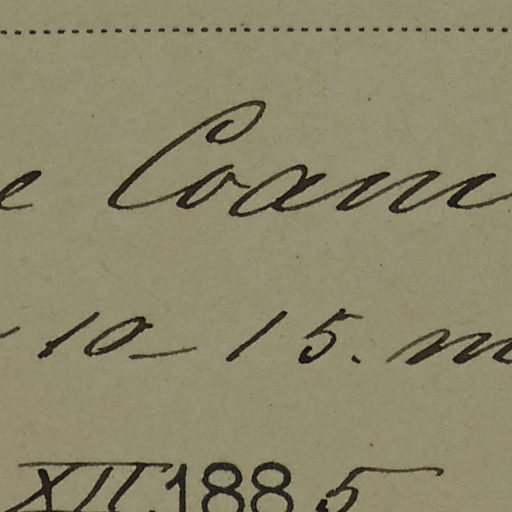 e Coam
10-15. m
XII 1885